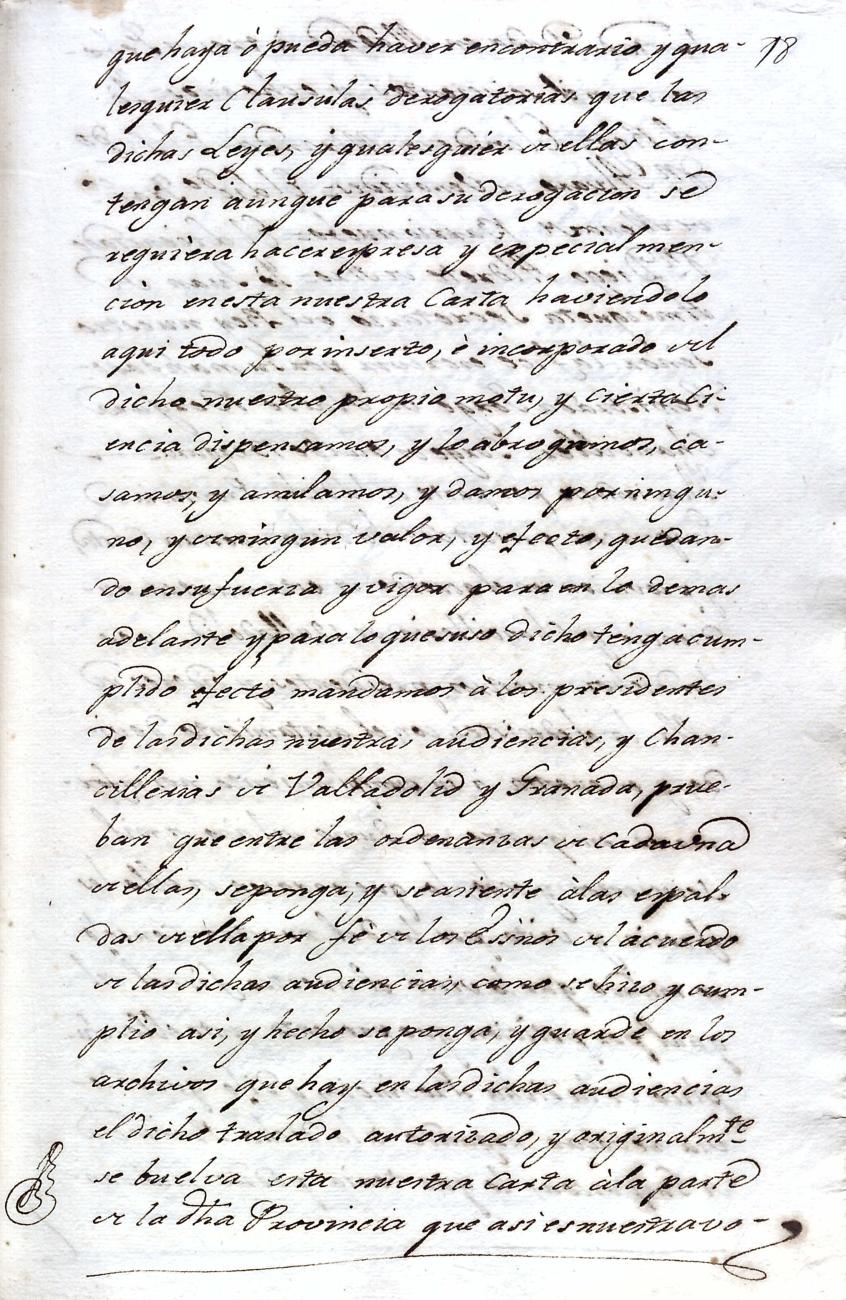 18
que haya ò pueda haver encontrario y qua-
lesquier Clausulas derogatorias que las
dichas Leyes, y qualesquier de ellas con-
tengan aunque para su derogacion se
requiera hacer expresa y especial men-
cion en esta nuestra Carta haviendolo
aqui todo por inserto, è incorporado del
dicho nuestro propio motu, y cierta ci-
encia dispensamos, y lo abrogamos, ca-
samos, y anulamos, y damos por ningu-
no, y de ningun valor, y efecto, quedan-
do en su fuerza y vigor para en lo demas
adelante y para lo que suso dicho tenga cum-
plido efecto mandamos à los presidentes
de las dichas nuestras audiencias, y Chan-
cillerias de Valladolid y Granada, prue-
ban que entre las ordenanzas de cada una
de ellas, se ponga, y se asiente à las espal-
das de ella por fè de los Esnos del acuerdo
de las dichas audiencias, como se hizo y cum-
plio asi, y hecho se ponga, y guarde en los
archivos que hay en las dichas audiencias
el dicho traslado autorizado, y originalmte
se buelva esta nuestra Carta à la parte
de la dha Provincia que asi es nuestra vo-